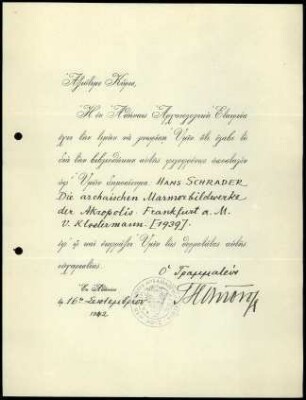 Ἀξιότιμε Κύριε,
Ἡ ἐν Ἀθήναις Ἀρχαιολογικὴ Ἑταιρεία
ἔχει τὴν τιμὴν νὰ γνωρίσῃ Ὑμῖν ὅτι ἔλαβε τὸ
διὰ τὴν βιβλιοθήκην αὐτῆς
ὑφ' Ὑμῶν δημοσίευμα: HANS SCHRADER
Die archaischen Marmorbildwerke
der Akropolis. Frankfurt a. M.
V. Klostermann. [1939].
ἐφ' ᾧ καὶ ἐκφράζει Ὑμῖν τὰς θερμοτάτας αὐτῆς
εὐχαριστίας.
Ὁ Γραμματεύς
Ἐν Ἀθήναις
τῇ 16ῃ Σεπτεμβρίου
1942